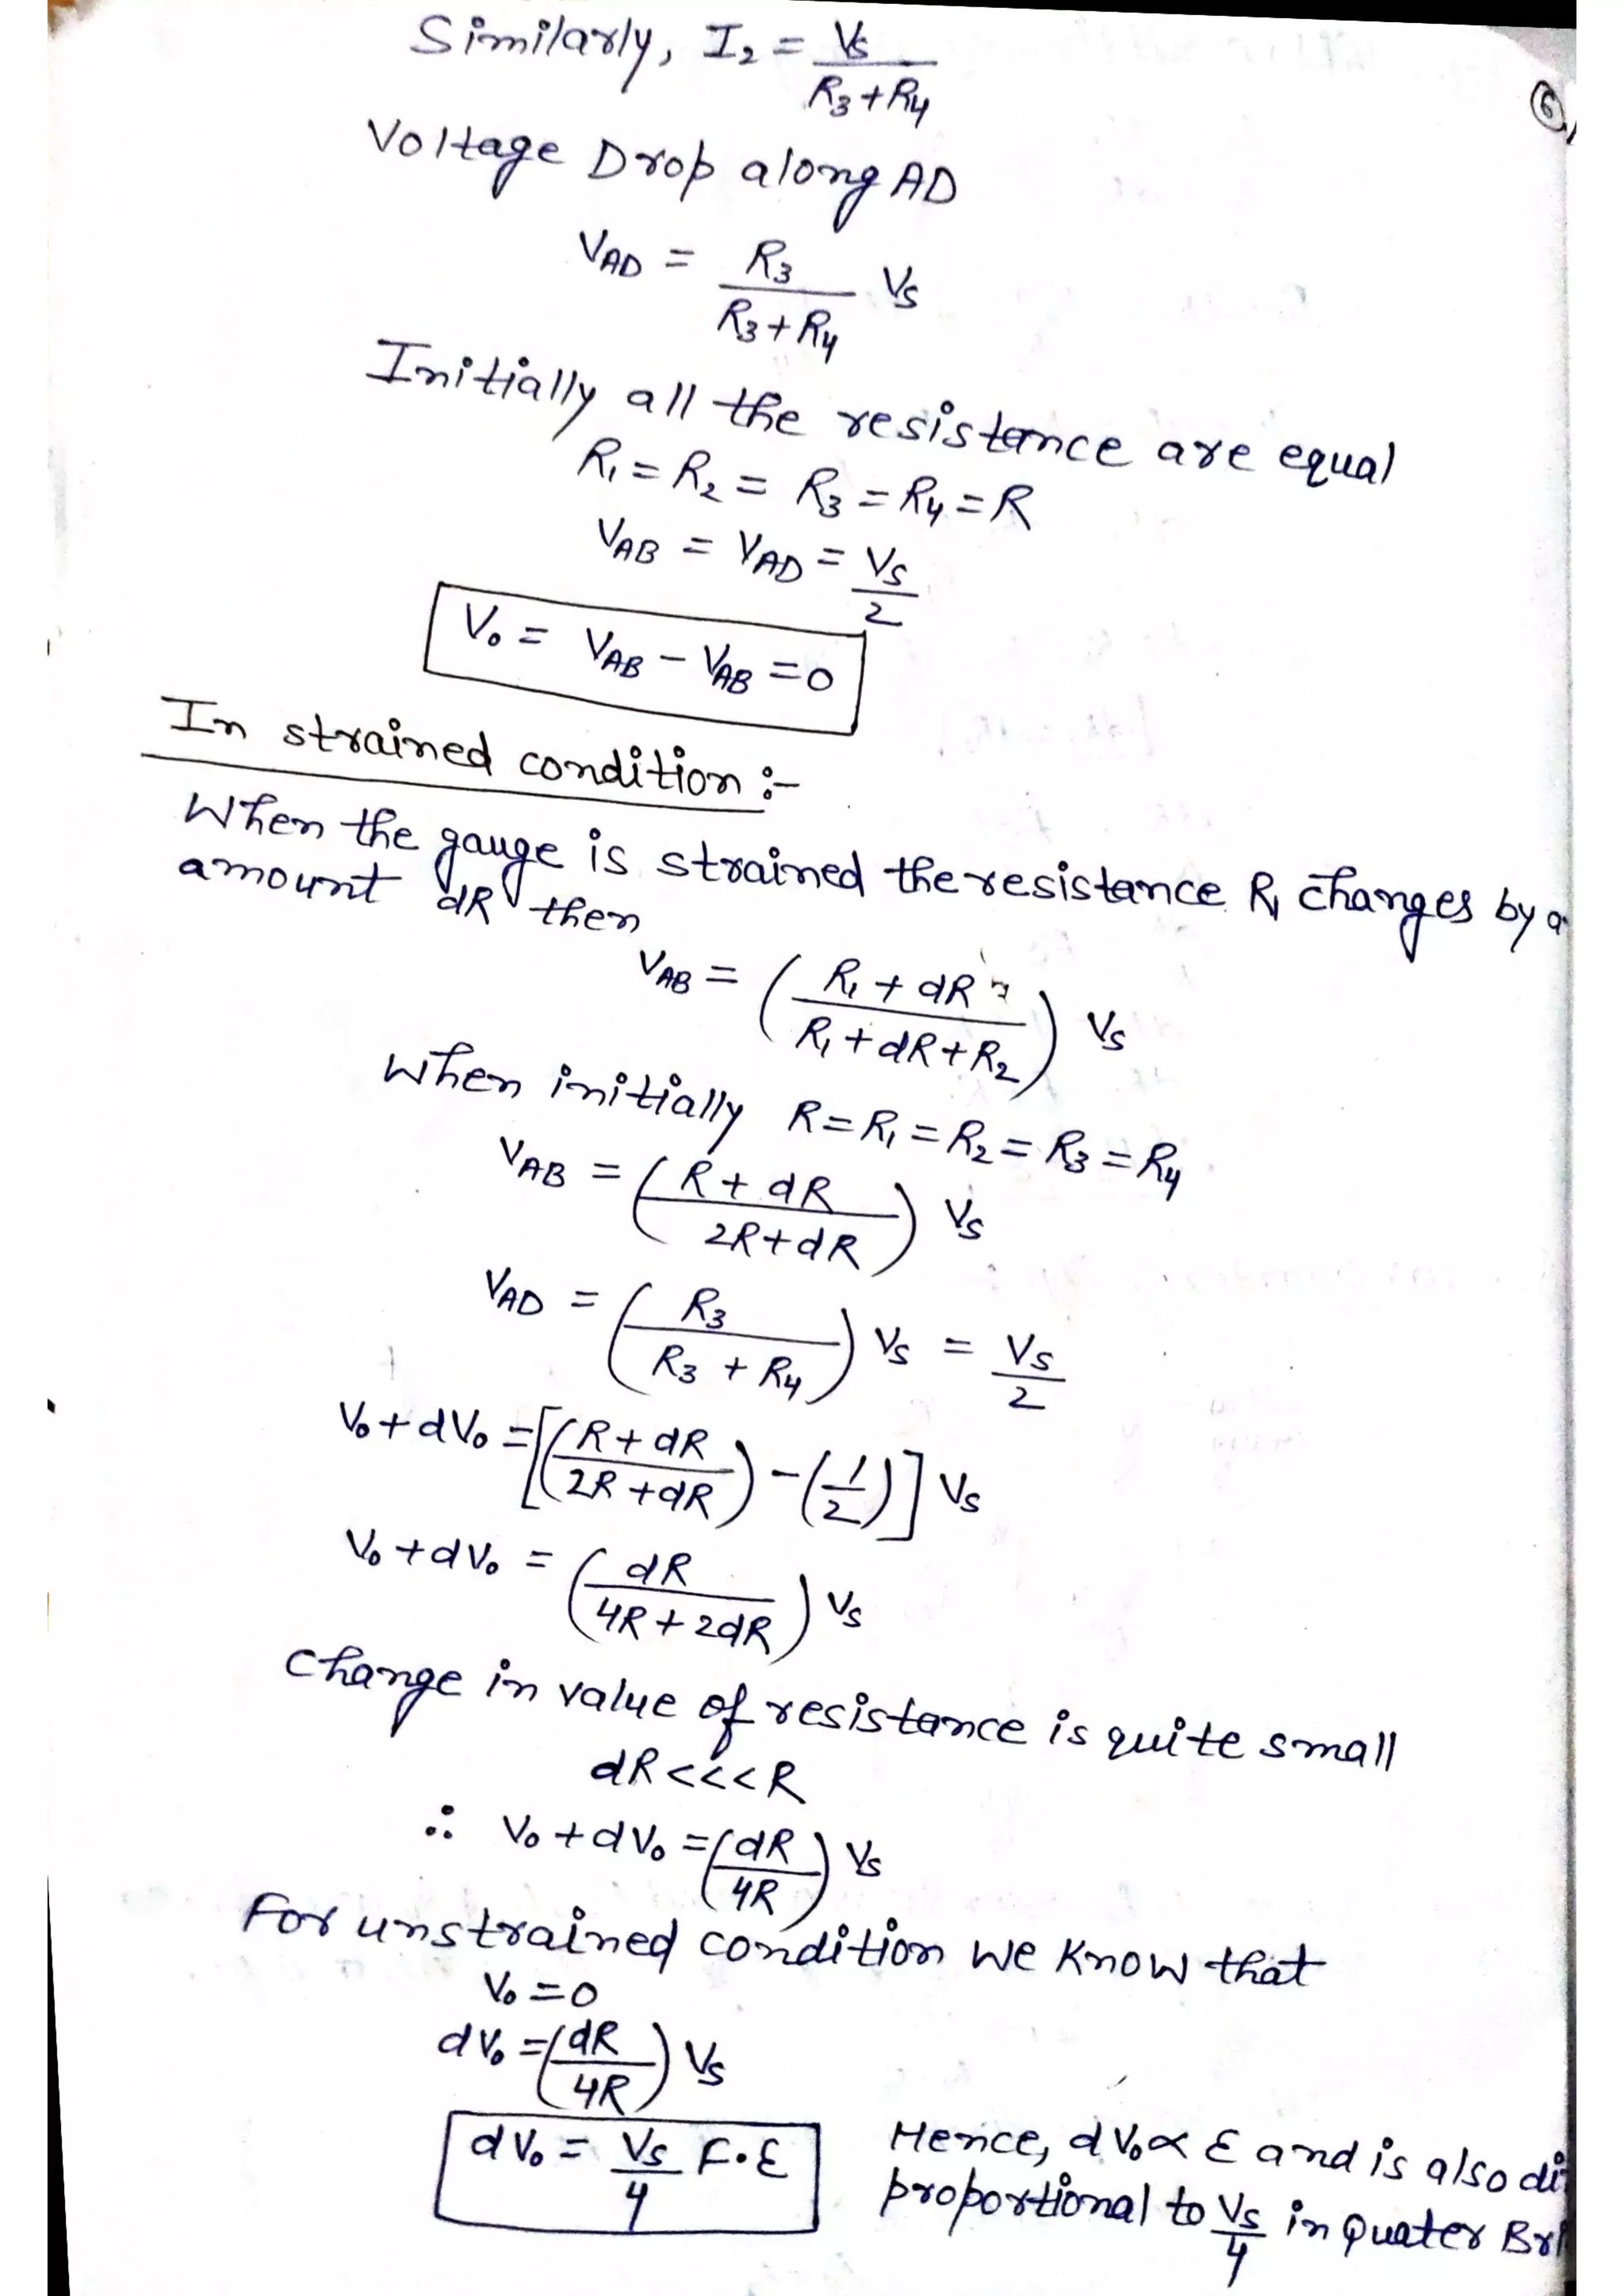 Similarly, I₂ = Vs/(R₃+R₄)
⑥
Voltage Drop along AD
V_AD = R₃/(R₃+R₄) Vs
Initially all the resistance are equal
R₁ = R₂ = R₃ = R₄ = R
V_AB = V_AD = Vs/2
V₀ = V_AB − V_AB = 0
In strained condition :-
When the gauge is strained the resistance R₁ changes by a
amount dR then
V_AB = ((R₁ + dR)/(R₁ + dR + R₂)) Vs
When initially R = R₁ = R₂ = R₃ = R₄
V_AB = ((R + dR)/(2R + dR)) Vs
V_AD = (R₃/(R₃ + R₄)) Vs = Vs/2
V₀ + dV₀ = [((R + dR)/(2R + dR)) − (1/2)] Vs
V₀ + dV₀ = (dR/(4R + 2dR)) Vs
Change in value of resistance is quite small
dR <<< R
∴ V₀ + dV₀ = (dR/4R) Vs
For unstrained condition we know that
V₀ = 0
dV₀ = (dR/4R) Vs
dV₀ = Vs/4 F.Ɛ
Hence, dV₀ ∝ Ɛ and is also di
proportional to Vs/4 in Quater Bri